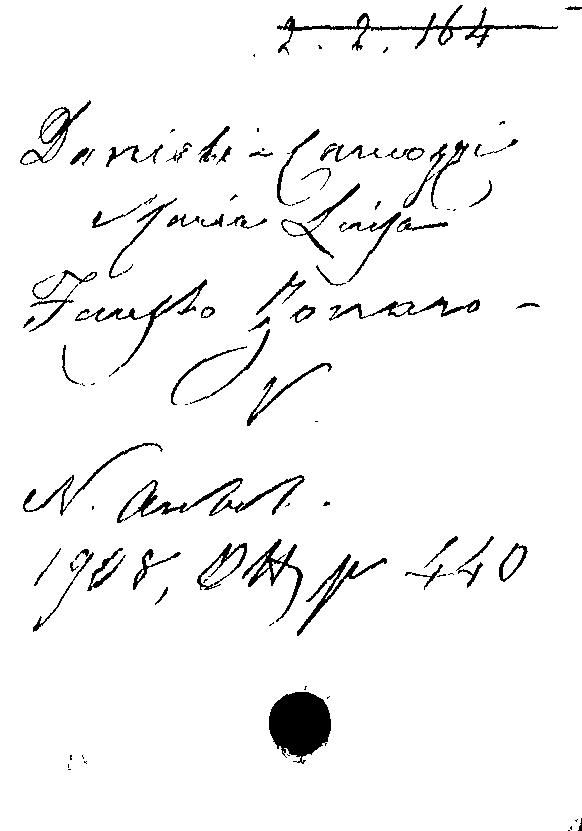 2. 2. 164
Danieli-Camozzi
Maria Luisa
Fausto Zonaro -
V
N. Antol.
1908, p 440